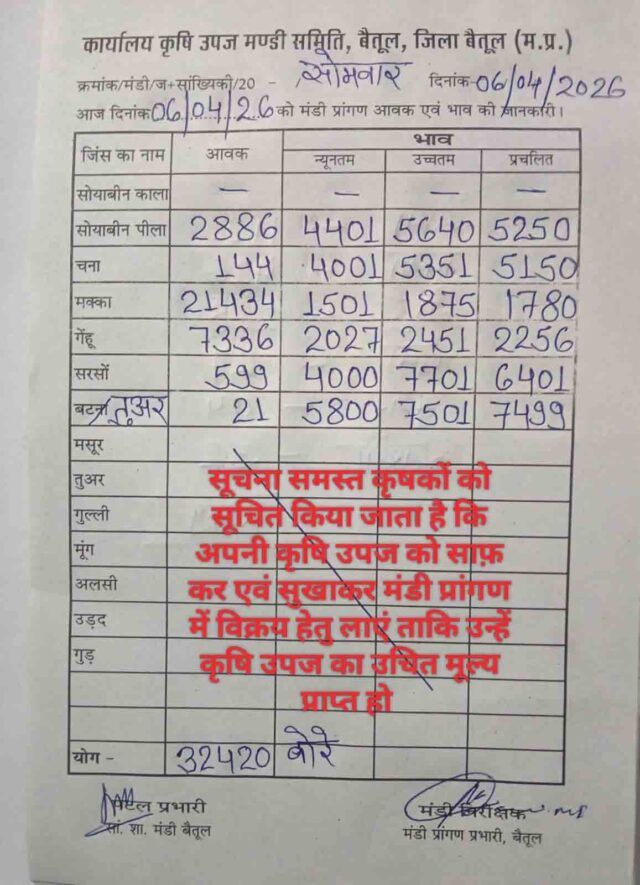 कार्यालय कृषि उपज मण्डी समिति, बैतूल, जिला बैतूल (म.प्र.)
क्रमांक/मंडी/ज+सांख्यिकी/20 - सोमवार दिनांक-06/04/2026
आज दिनांक 06/04/26 को मंडी प्रांगण आवक एवं भाव की जानकारी।
जिंस का नाम आवक भाव
न्यूनतम उच्चतम प्रचलित
सोयाबीन काला — — — —
सोयाबीन पीला 2886 4401 5640 5250
चना 144 4001 5351 5150
मक्का 21434 1501 1875 1780
गेंहू 7336 2027 2451 2256
सरसों 599 4000 7701 6401
बटना तुअर 21 5800 7501 7499
मसूर
तुअर
गुल्ली
मूंग
अलसी
उड़द
गुड़
सूचना समस्त कृषकों को
सूचित किया जाता है कि
अपनी कृषि उपज को साफ़
कर एवं सुखाकर मंडी प्रांगण
में विक्रय हेतु लाएं ताकि उन्हें
कृषि उपज का उचित मूल्य
प्राप्त हो
योग - 32420 बोरे
पटल प्रभारी
सां. शा. मंडी बैतूल
मंडी निरीक्षक
मंडी प्रांगण प्रभारी, बैतूल